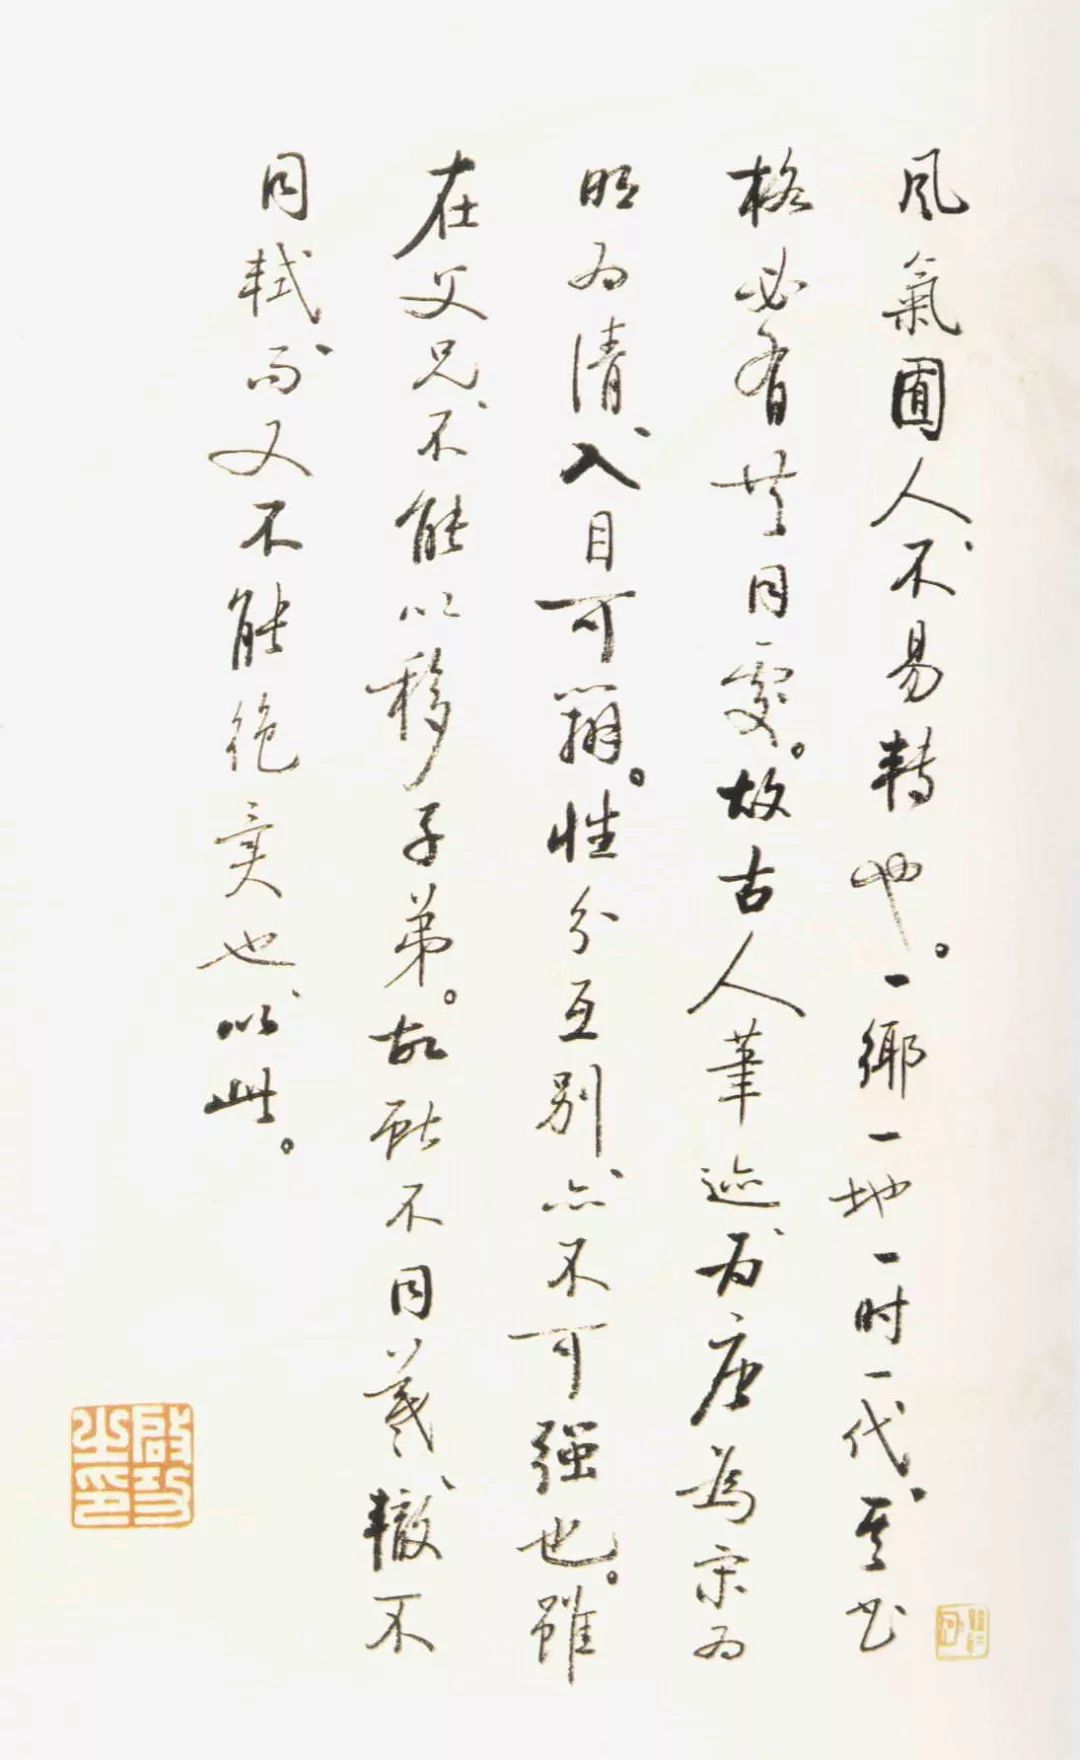 風氣囿人、不易轉也。一鄉一地一时一代、其书
格必有其同處。故古人筆迹、为唐為宋为
明为清、入目可辨。性分互别、亦不可强也。雖
在父兄、不能以移子弟。故献不同羲、轍不
同軾、而又不能絶異也、以此。
啟功之印